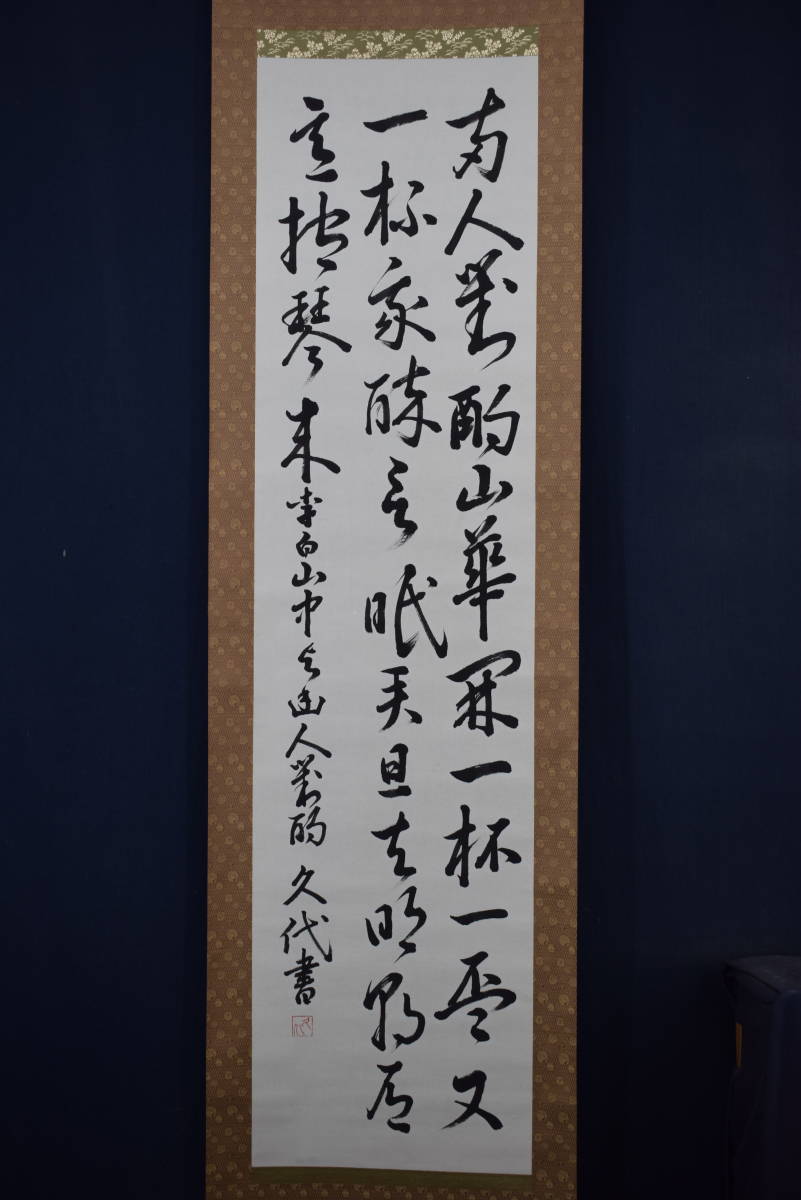 両人對酌山華開一杯一盃又
一杯我酔欲眠君且去明朝有
意抱琴来李白山中与幽人對酌 久代書